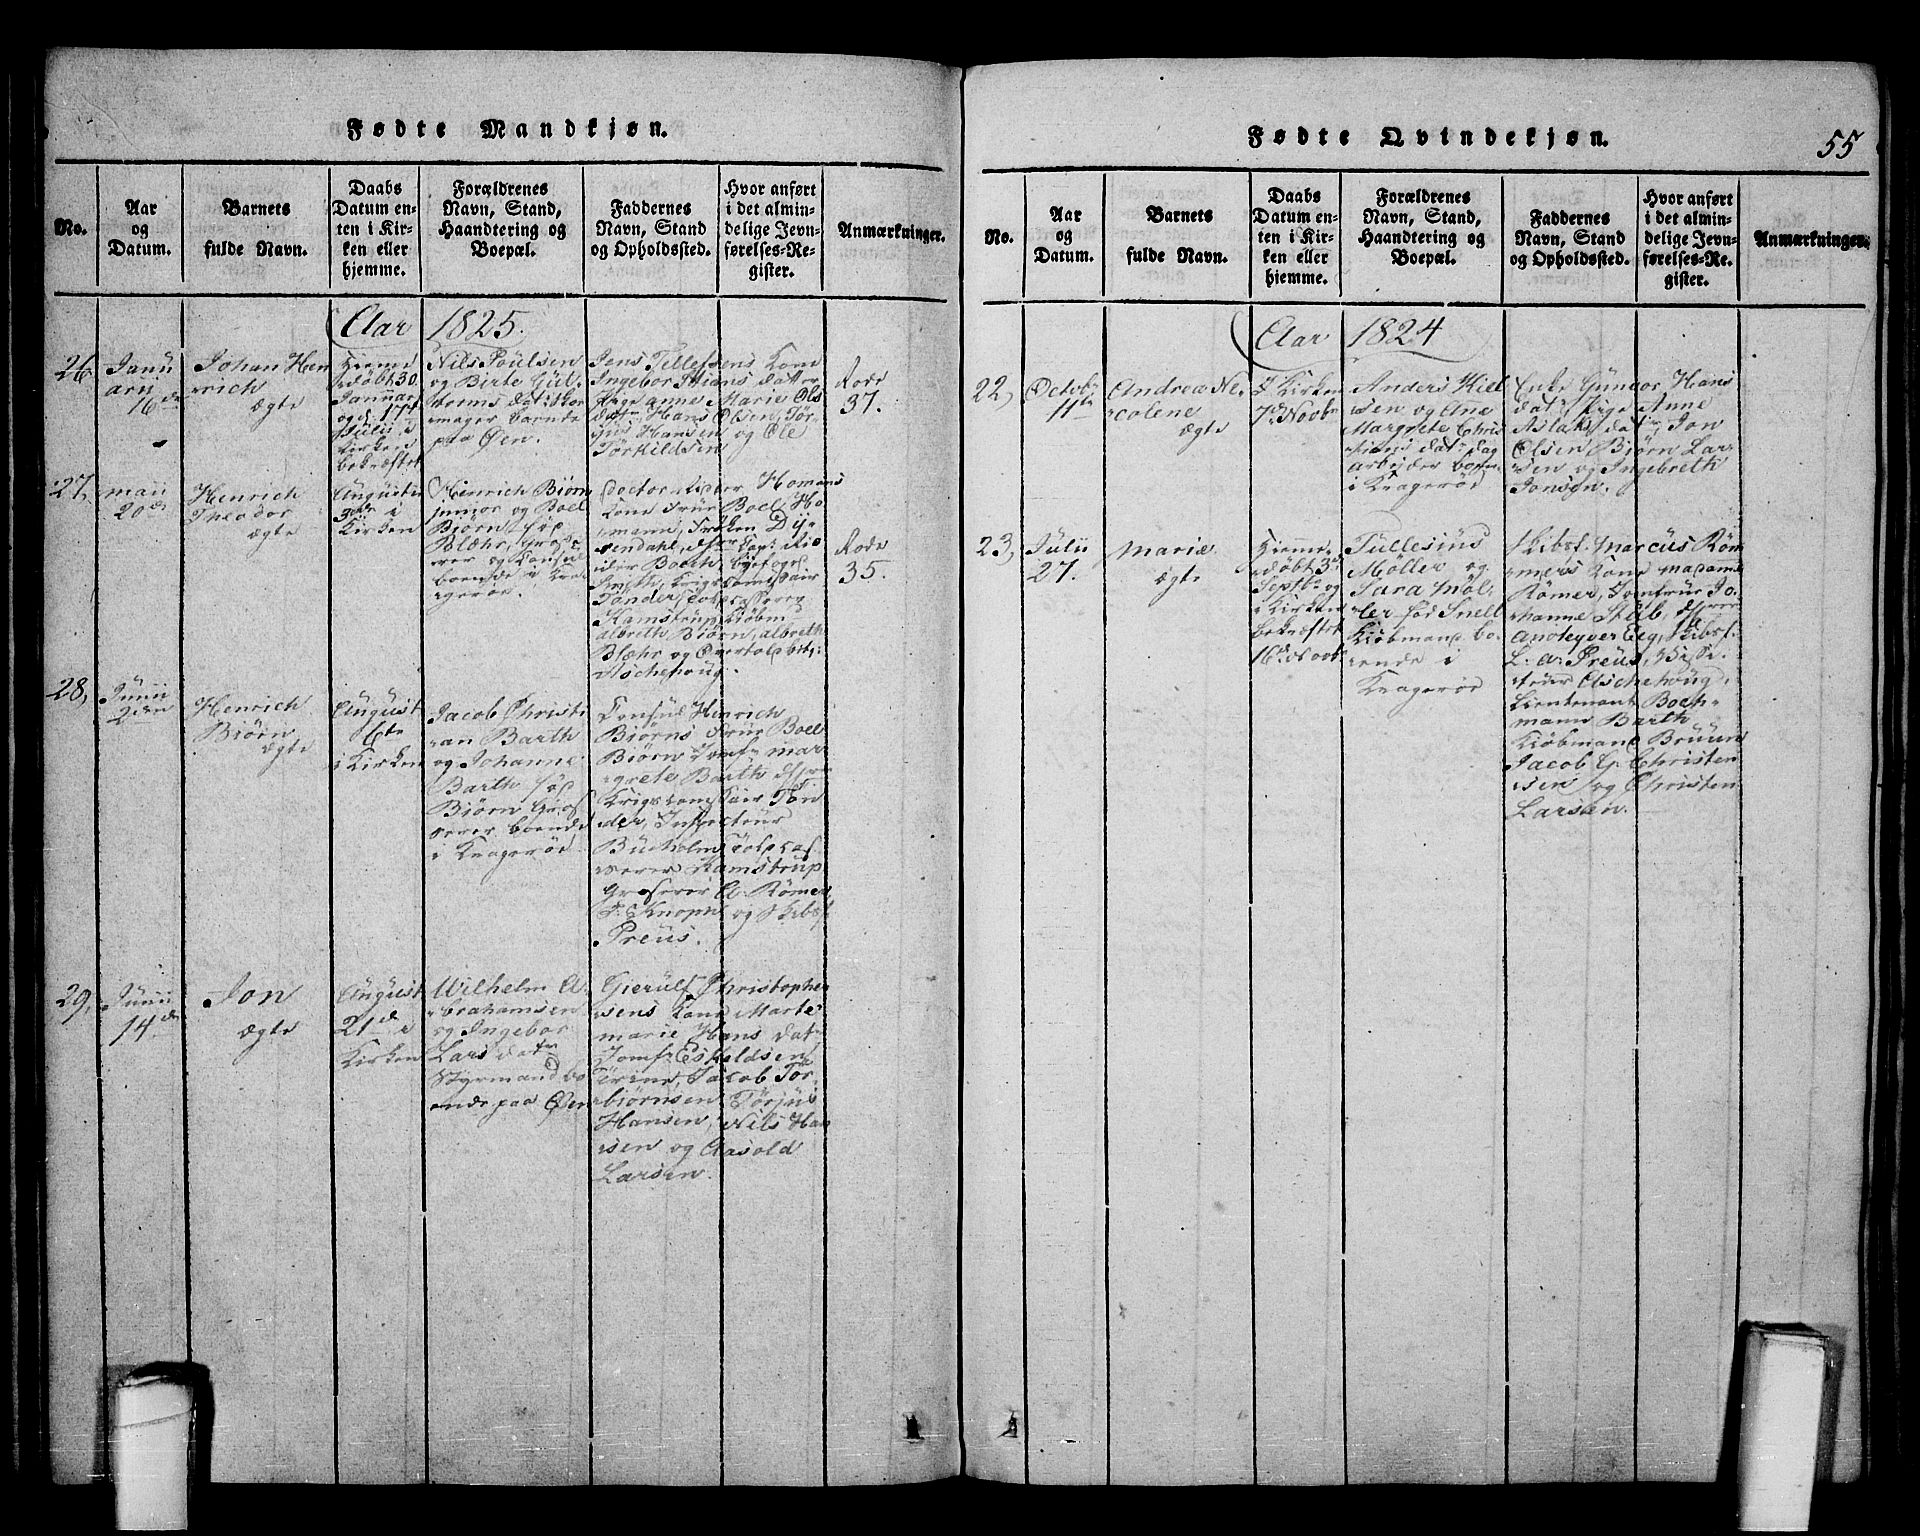 Fødte Mandkjøn.
No.
Aar
og
Datum.
Barnets
fulde Navn.
Daabs
Datum en-
ten i Kir-
ken eller
hjemme.
Forældrenes
Navn, Stand,
Haandtering og
Boepæl.
Faddernes
Navn, Stand
og Opholdssted.
Hvor anført
i det almin-
delige Jevn-
førelses-Re-
gister.
Anmærkninger.
Aar 1825.
26
Janu
arii
16de
Johan Hen
rich
ægte
Hjemme
døbt 30
Januar
og d. 17de
Julii i
Kirken
bekræftet
Nils Poulsen
og Birte Gul-
borms dat: Skoe
mager boende
paa Øen.
Jens Tellefsens Kone
Ingebor
Pige Anne Marie Ols
datr Hans Olsen, Tør
gius Hansen og Ole
Torkildsen
Rode
37.
27,
Maii
20de
Henrich
Theodor
ægte
Augusti
i
Kirken
Henrich Biørn
junior og Boel
Biørn, fød
Blæhr, Gros-
erer og Consul
boende i Kra-
gerøe.
Doctor Homans
Kone Frue Boel Ho
mann, Frøken Dy-
rendahl,
Boeth, byefoged
Smith, Krigscomissair
Tønder
Kamstrup, Kiøbm
Albreth Biørn, Albreth
Blæhr og
Aschehoug.
Rode
35.
28,
Junii
2den
Henrich
Biørn
ægte
August
6te
i Kirken
Jacob Christi
an Barth
og Johanne
Barth fød
Biørn Gros
serer boende
i Kragerøe
Consul Henrich
Biørns Frue Boel
Biørn Jomfr Mar
grete Barth
Krigscomissair Tøn
der, Inspecteur
Buchholm, Told Cas
serer Kamstrup
Grosserer A. Rømer,
P. Knoph og Skibsf
Preus.
29,
Junii
14de
Jon
ægte
August
21de i
Kirken
Wilhelm A-
brahamsen
og Ingebor
Lars datr
Styrmand bo
ende paa Øen
Gierulf Christophe
sens Kone Marte
Marie Hans dat
Jomfr Eskeldsen
Terine, Jacob Tor-
biørnsen, Tørjus
Hansen, Nils Han
sen og Aasold
Larsen.
Fødte Qvindekjøn.
55
No.
Aar
og
Datum.
Barnets
fulde Navn.
Daabs
Datum en-
ten i Kir-
ken eller
hjemme.
Forældrenes
Navn, Stand,
Haandtering og
Boepæl.
Faddernes
Navn, Stand
og Opholdssted.
Hvor anført
i det almin-
delige Jevn-
førelses-Re-
gister.
Anmærkninger.
Aar 1824
22,
Octobr
11te
Andrea Ni-
colene
ægte
I Kirken
7de Novbr
Anders Kiel
sen og Ane
Margrete Chris
tians dat: Dag
arbejder boen
i Kragerøe
Enke Guneor Hans
dat: Pige Anne
Aslaks datr, Jon
Olsen Biørn Lar
sen og Ingebreth
Jonsen.
23,
Julii
27.
Marie
ægte
Hjemme-
døbt 3de
Septbr og
i Kirken
bekræftet
16de Novbr
Tullesius
Møller og
Sara Møl-
ler fød Snell
Kiøbmand bo-
ende i
Kragerøe
Skibsf. Marcus Røm
mers Kone Madame
Rømer, Jomfrue Jo-
hanne Stub,
Apoteqver Eeg, Skibsf.
L. A. Preus,
Aschehoug,
Lieutenant Boch-
mann Barth
Kiøbmand Bruun
Jacob G. Christen
sen og Christen
Larsen.